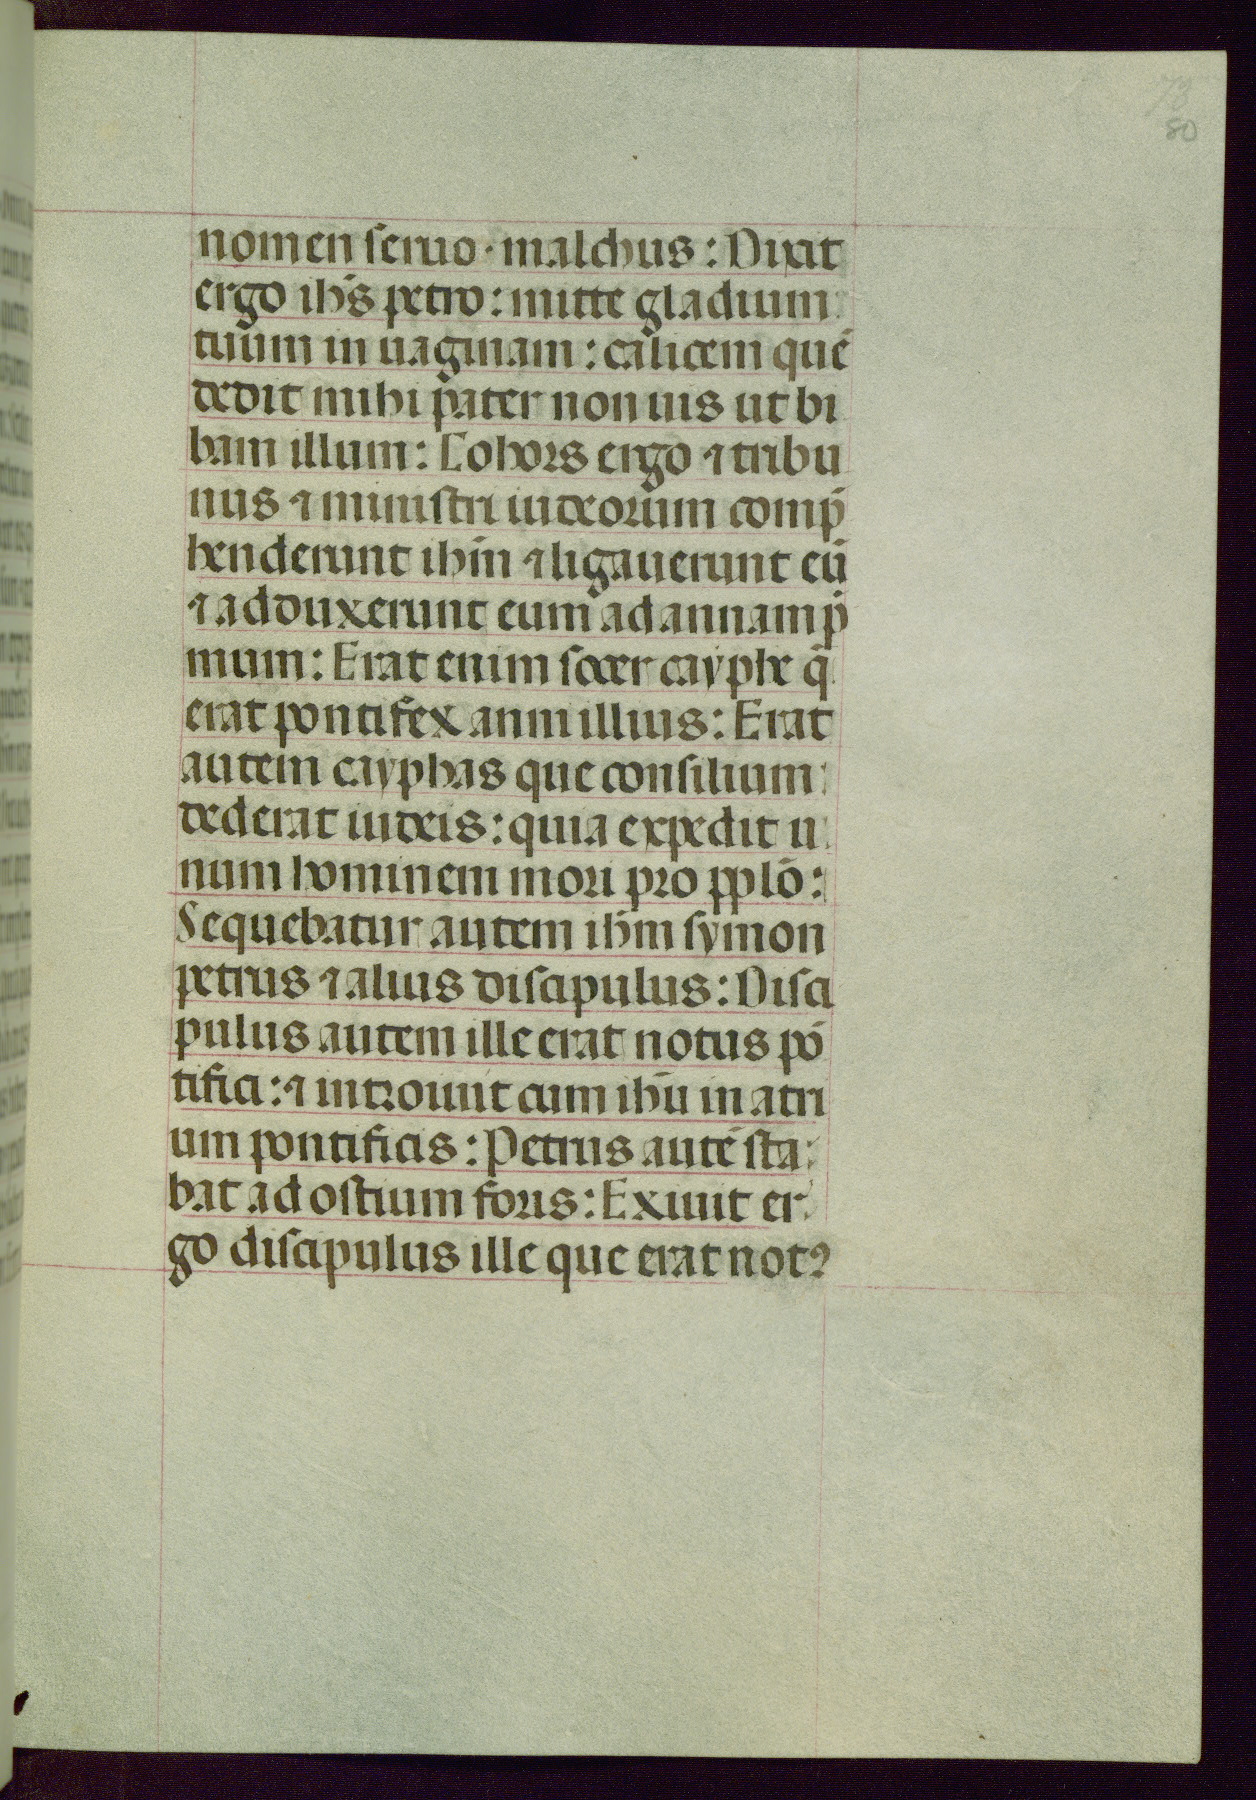 73
80
nomen seruo · malchus : Dixit
ergo ih̄s petro : mitte gladium
tuum in uaginam : calicem quē
dedit mihi pater non uis ut bi
bam illum : Cohors ergo ⁊ tribu
nus ⁊ ministri iudeorum comp̄
henderunt ih̄m ⁊ ligauerunt eū
⁊ adduxerunt eum ad annam p̄
mum : Erat enim socer cayphe q̄
erat pontifex anni illius : Erat
autem cayphas que consilium
dederat iudeis : quia expedit u
num hominem mori pro pplō :
Sequebatur autem ih̄m symon
petrus ⁊ alius discipulus : Disci
pulus autem ille erat notus pō
tifici : ⁊ introiuit cum ih̄u in atri
um pontificis : Petrus autē sta
bat ad ostium foris : Exiuit er
go discipulus ille que erat notꝰ